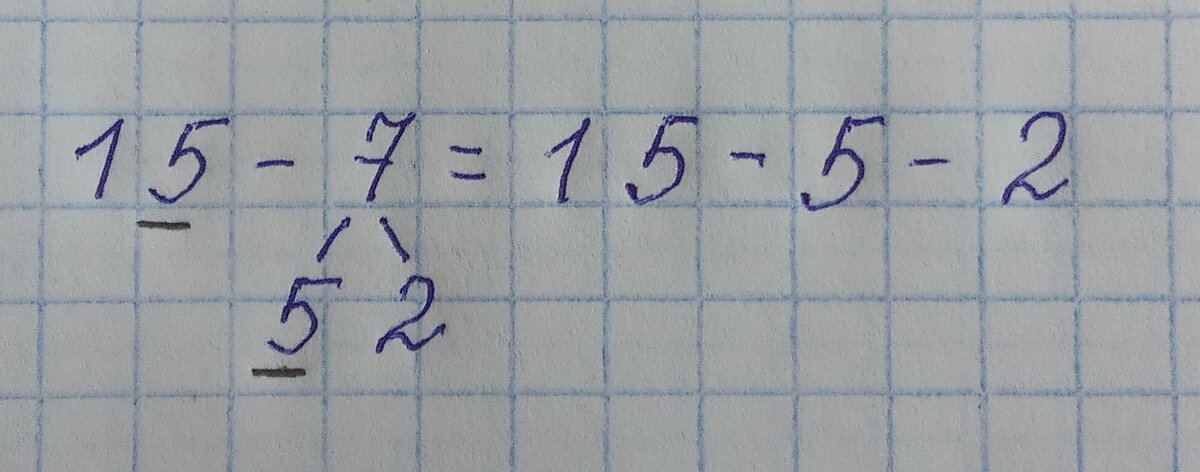 15 - 7 = 15 - 5 - 2
5 2